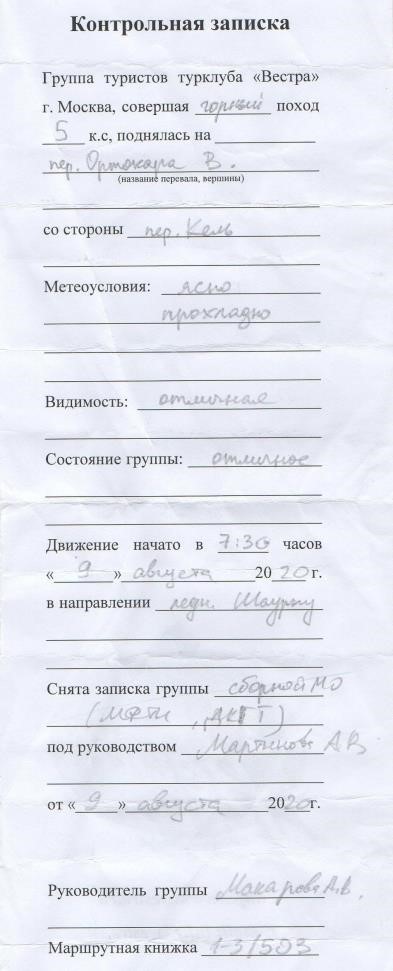 Контрольная записка
Группа туристов турклуба «Вестра»
г. Москва, совершая горный поход
5 к.с, поднялась на
пер. Ортокара В.
(название перевала, вершины)
со стороны пер. Кель
Метеоусловия: ясно
прохладно
Видимость: отличная
Состояние группы: отличное
Движение начато в 7:30 часов
«9» августа 2020 г.
в направлении ледн. Шаурту
Снята записка группы сборной МО
(МФТИ,
под руководством Мартынова АВ
от «9» августа 2020г.
Руководитель группы Макарова А.В.
Маршрутная книжка 1-3/503